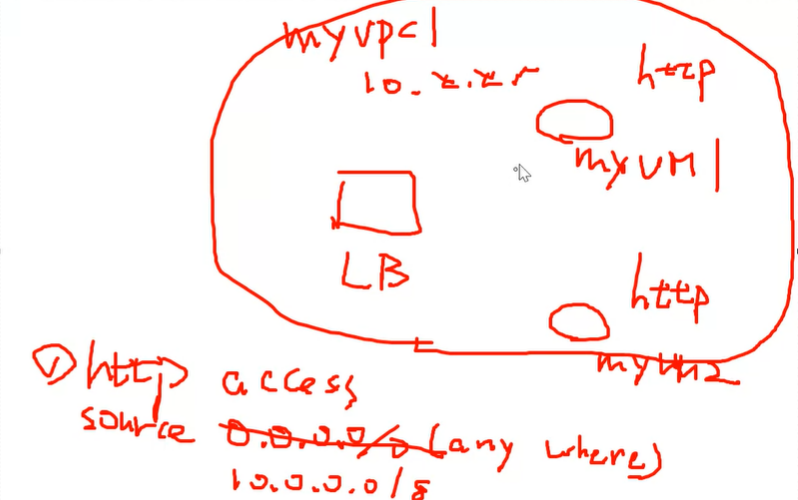 myvpc1
10.x.x.x
http
myVM1
LB
http
myVM2
① http access
source 0.0.0.0/0 (any where)
10.0.0.0/8